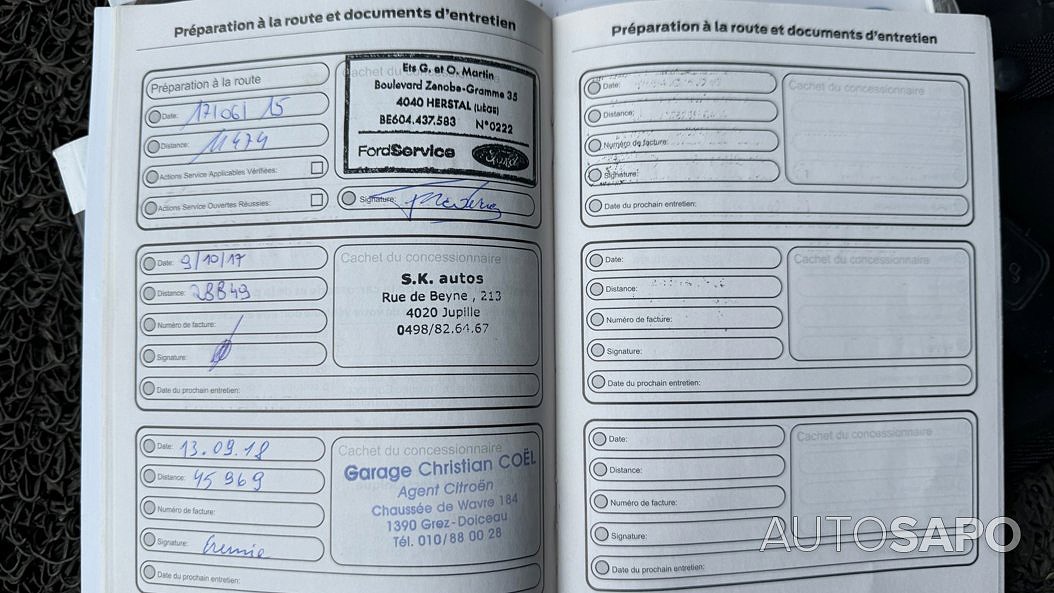 Préparation à la route et documents d'entretien
Préparation à la route
Date: 17/06/15
Distance: 11474
Actions Service Applicables Vérifiées:
Actions Service Ouvertes Réussies:
Cachet du concessionnaire
Ets G. et O. Martin
Boulevard Zenobe-Gramme 35
4040 HERSTAL (LIEGE)
BE604.437.583 N°0222
FordService
Signature:
Date: 9/10/17
Distance: 28849
Numéro de facture:
Signature:
Date du prochain entretien:
Cachet du concessionnaire
S.K. autos
Rue de Beyne , 213
4020 Jupille
0498/82.64.67
Date: 13.09.18
Distance: 45 969
Numéro de facture:
Signature:
Date du prochain entretien:
Cachet du concessionnaire
Garage Christian COËL
Agent Citroën
Chaussée de Wavre 184
1390 Grez-Doiceau
Tél. 010/88 00 28
Préparation à la route et documents d'entretien
Date:
Distance:
Numéro de facture:
Signature:
Date du prochain entretien:
Cachet du concessionnaire
Date:
Distance:
Numéro de facture:
Signature:
Date du prochain entretien:
Cachet du concessionnaire
Date:
Distance:
Numéro de facture:
Signature:
Date du prochain entretien:
Cachet du concessionnaire
AUTOSAPO